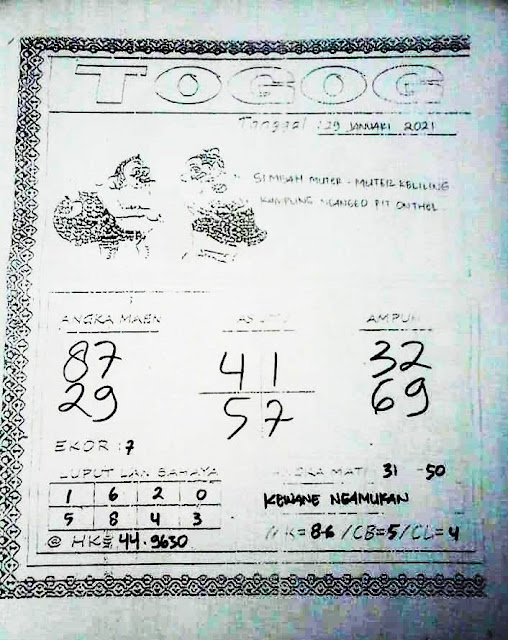 TOGOG
Tanggal : 29 JANUARI 2021
SIMBAH MUTER - MUTER KELILING
KAMPUNG NGANGGO PIT ONTHEL
ANGKA MAEN
87
29
EKOR : 7
41
57
AMPUH
32
69
LUPUT LAN BAHAYA
1 6 2 0
5 8 4 3
@ HK = 44.9630
ANGKA MATI 31 - 50
KEWANE NGAMUKAN
MK = 86 / CB = 5 / CL = 4